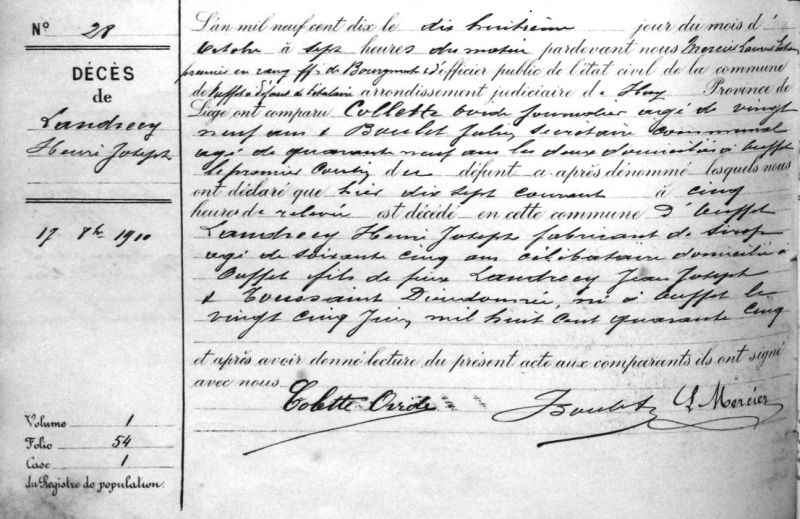 N° 28
DÉCÈS
de
Landrecy
Henri Joseph
17 8bre 1910
Volume 1
Folio 54
Case 1
du Registre de population.
L'an mil neuf cent dix le dix huitième jour du mois d'
Octobre à sept heures du matin pardevant nous Mercier Laurent
premier en rang ff de Bourgmestre d'officier public de l'état civil de la commune
arrondissement judiciaire de Huy Province de
Liège ont comparu Collette Ovide journalier agé de vingt
neuf ans & Boulet Jules secrétaire communal
agé de quarante neuf ans les deux domiciliés à Ouffet
le premier cousin du défunt ci après dénommé lesquels nous
ont déclaré que hier dix sept courant à cinq
heures de relevée est décédé en cette commune d'Ouffet
Landrecy Henri Joseph fabricant de sirop
agé de soixante cinq ans célibataire domicilié à
Ouffet fils de feux Landrecy Jean Joseph
& Toussaint Dieudonnée, né à Ouffet le
vingt cinq Juin mil huit cent quarante cinq
et après avoir donné lecture du présent acte aux comparants ils ont signé
avec nous.
Colette Ovide Boulet L Mercier